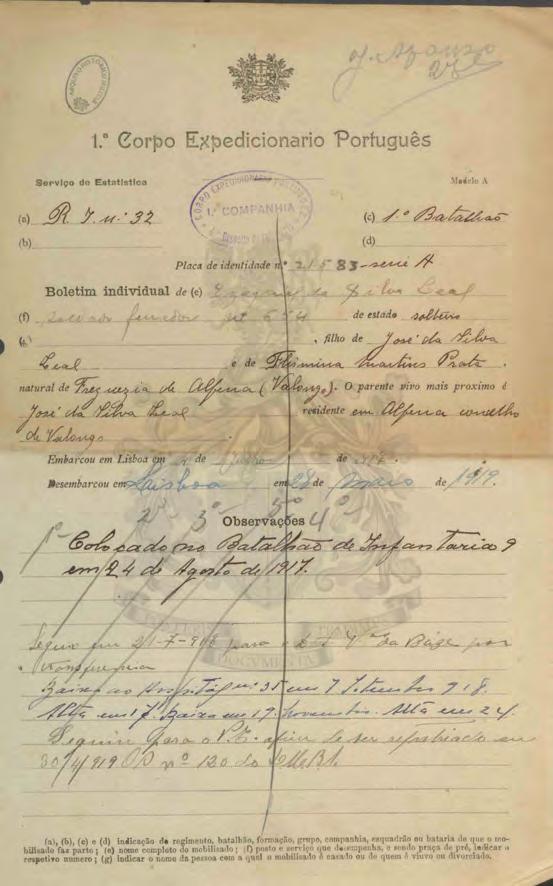 J. Afonso
ARQUIVO HISTORICO MILITAR
1.º Corpo Expedicionario Português
Serviço de Estatistica
Modêlo A
CORPO EXPEDICIONARIO PORTUGUES
1.ª COMPANHIA
(a) R. I. n.º 32
(c) 1.º Batalhão
(b)
(d)
Placa de identidade n.º 21583 - serie A
Boletim individual de (e) da Silva Leal
(f) nº 654 de estado solteiro
, filho de José da Silva
Leal e de Martins Prata
natural de Freguezia de Alfena (Valongo). O parente vivo mais proximo é
José da Silva Leal residente em Alfena concelho
de Valongo
Embarcou em Lisboa em de de
Desembarcou em Laisboa em 28 de Maio de 1919.
2º 3º 5º 4º
Observações
1º Colocado no Batalhão de Infantaria 9
em 24 de Agosto de 1917.
DOCUMENTA
Seguiu em 21-7-918 para o da Base por
Baixa ao Hospital nº 35 em 7 Setembro 918.
Alta em 17. Baixa em 19 Novembro. Alta em 24.
Seguiu para o afim de ser repatriado em
30/4/919 nº 120 do
(a), (b), (c) e (d) indicação do regimento, batalhão, formação, grupo, companhia, esquadrão ou bataria de que o mo-
bilisado faz parte; (e) nome completo do mobilisado; (f) posto e serviço que desempenha, e sendo praça de pré, indicar o
respetivo numero; (g) indicar o nome da pessoa com a qual o mobilisado é casado ou de quem é viuvo ou divorciado.